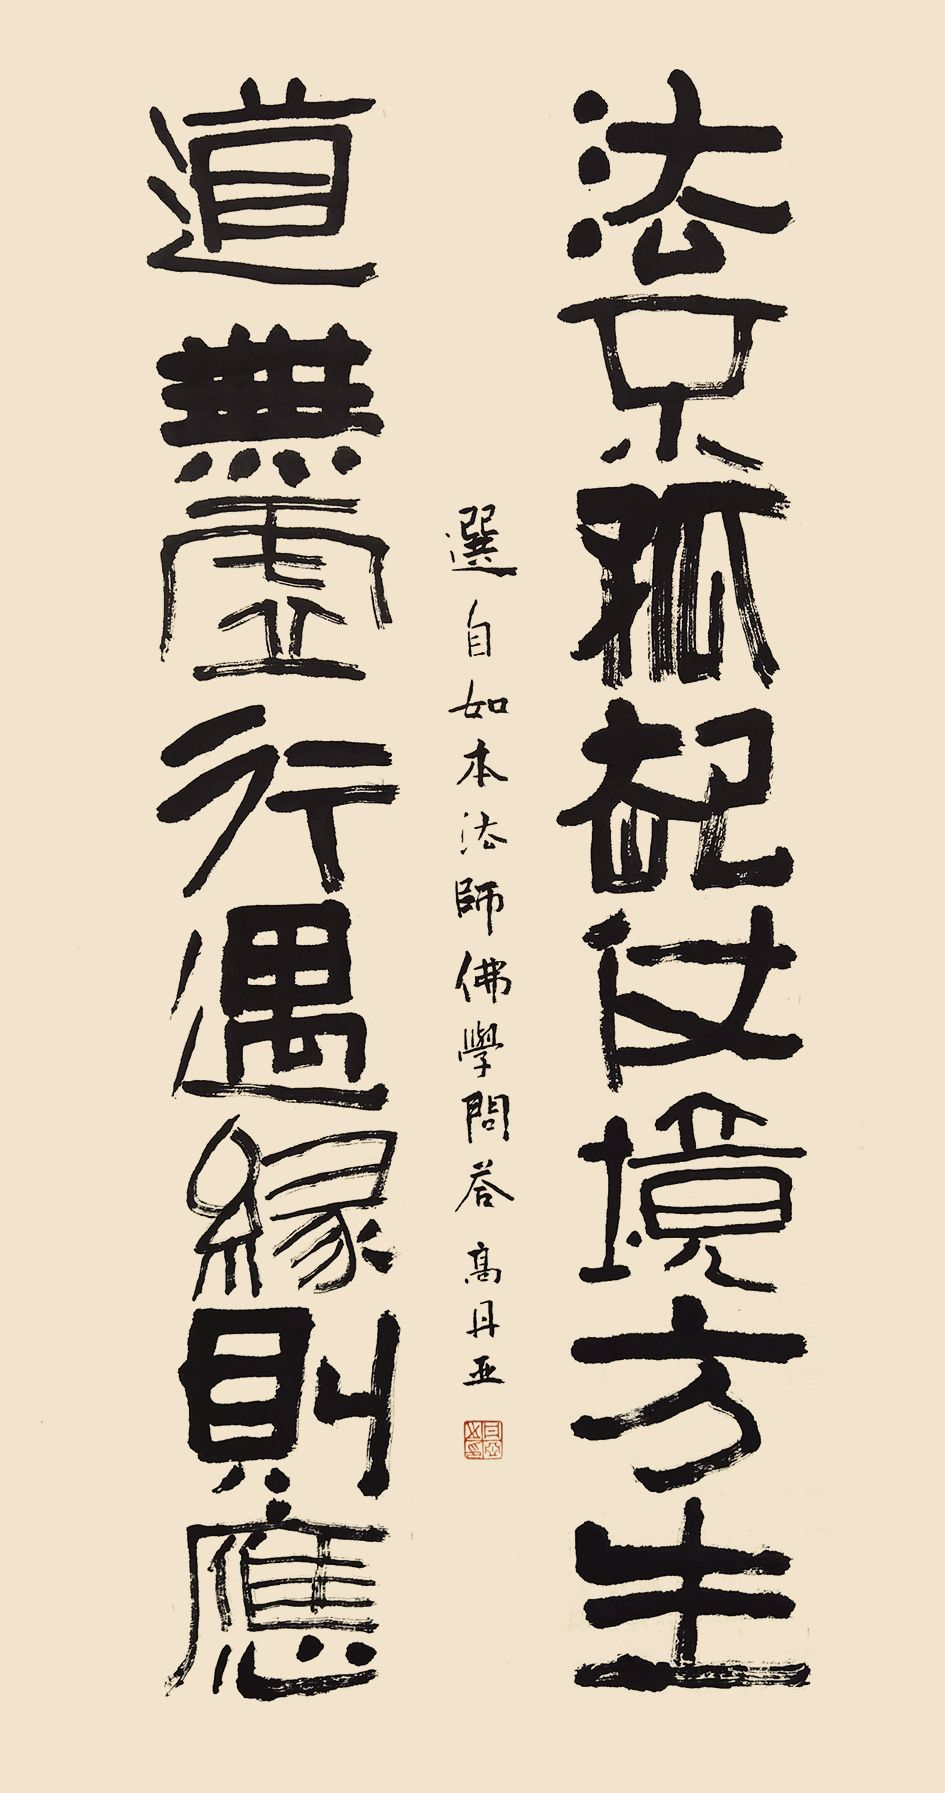 法不孤起仗境方生
選自如本法師佛學問荅 高丹亚
道無虛行遇緣則應